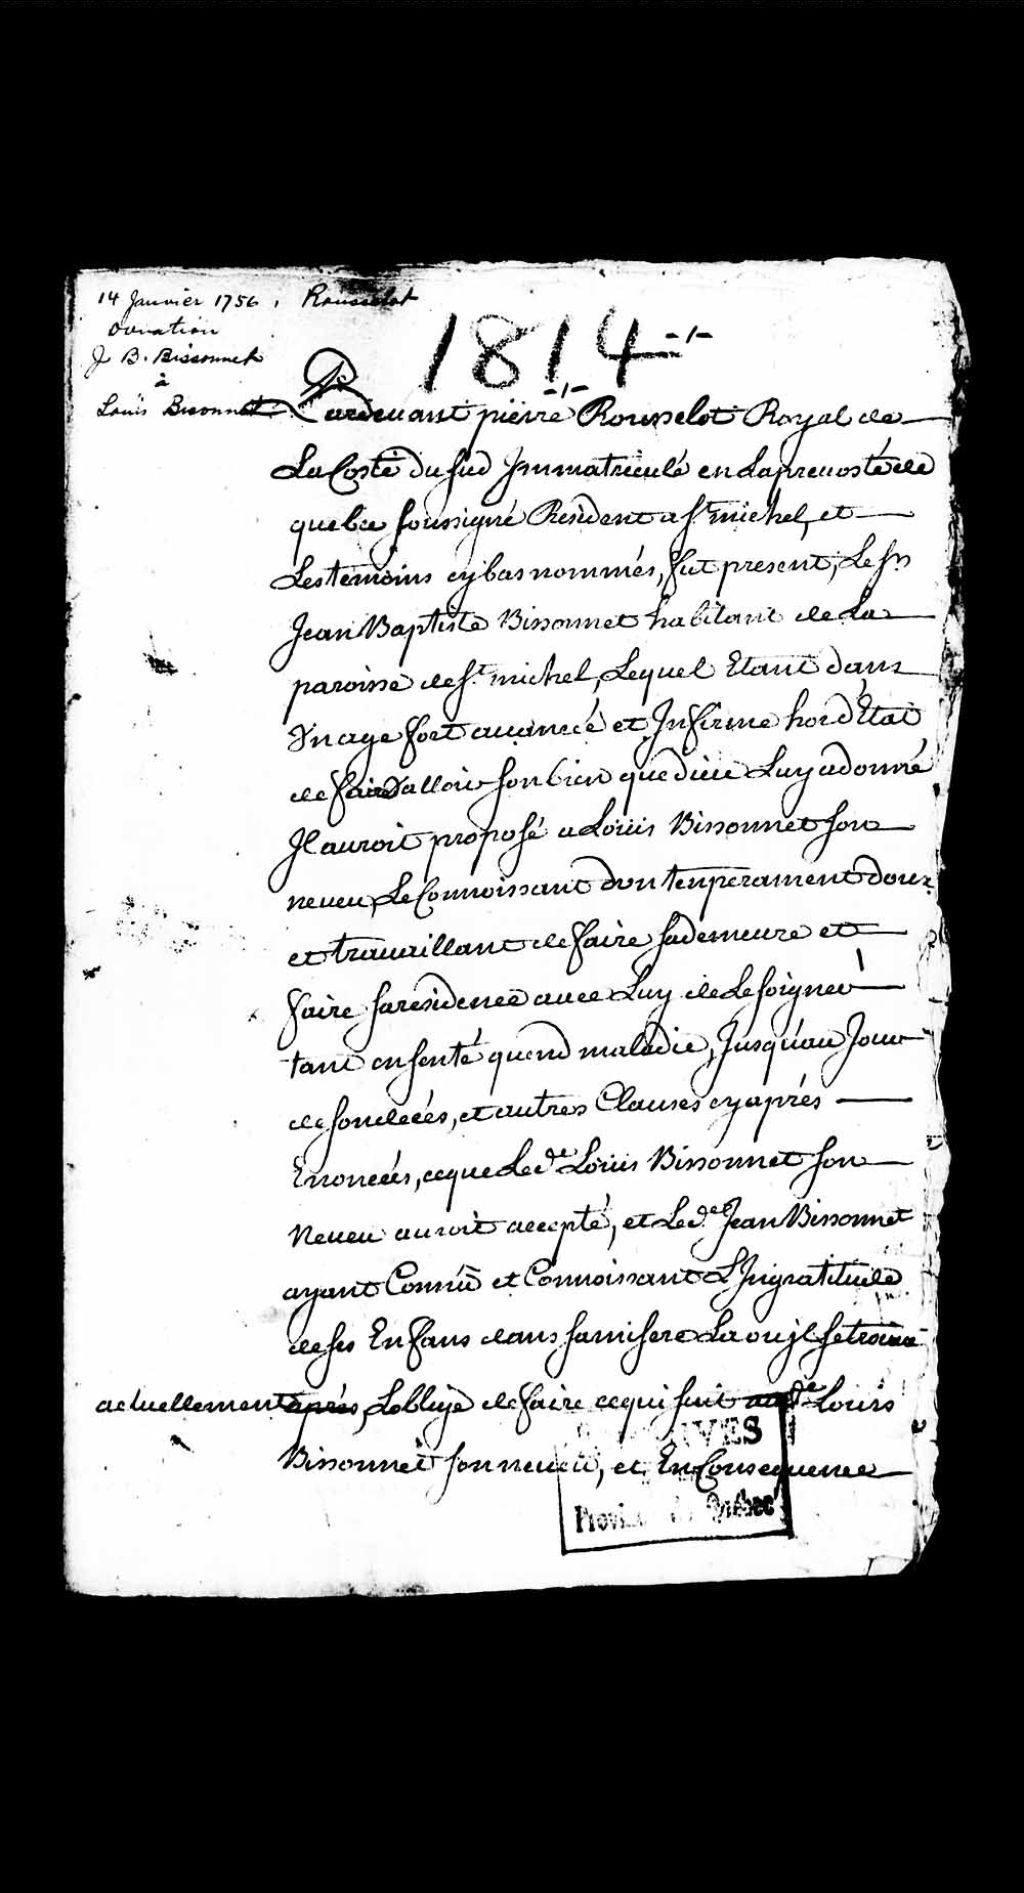 14 Janvier 1756. Rousselot
Donation
J B. Bissonnet
à
Louis Bissonnet
1814
Pardevant pierre Rousselot Royal de
La Coste du sud Jmmatriculé en La prevosté de
quebec soussigné Resident a st. michel, et
Les temoins cy bas nommés, fut present, Le sr.
Jean Baptiste Bissonnet habitant de La
paroisse de st. michel, Lequel Etant dans
Un age fort avancé et Jnfirme hord Etat
de faire valloir son bien que dieu Luy a donné
Jl auroit proposé a Louis Bissonnet son
neveu, Le Connoissant d'un temperament doux
et travaillant de faire sa demeure et
faire sa residence avec Luy de Le soigner
tant en senté quend maladie, Jusqu'au Jour
de son decés, et autres Clauses cy aprés
Enoncées, ce que Led. de Louis Bissonnet son
Neveu auroit accepté, et Led. Jean Bissonnet
ayant Connû et Connoissant L'Jngratitude
de ses Enfans dans sa misere La ou jl se trouve
actuellement après, Loblige de faire ce qui suit de Louis
Bissonnet son neveu, et En Consequence
ARCHIVES
Province de Québec